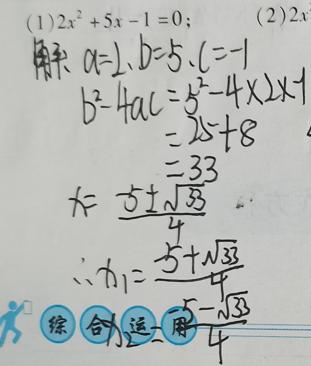 (1) 2x² + 5x - 1 = 0; (2) 2x²
解: a=2、b=5、c=-1
b²-4ac = 5²-4×2×-1
= 25+8
= 33
x = -5±√33/4
∴ x₁ = -5+√33/4
综合运用
x₂ = -5-√33/4